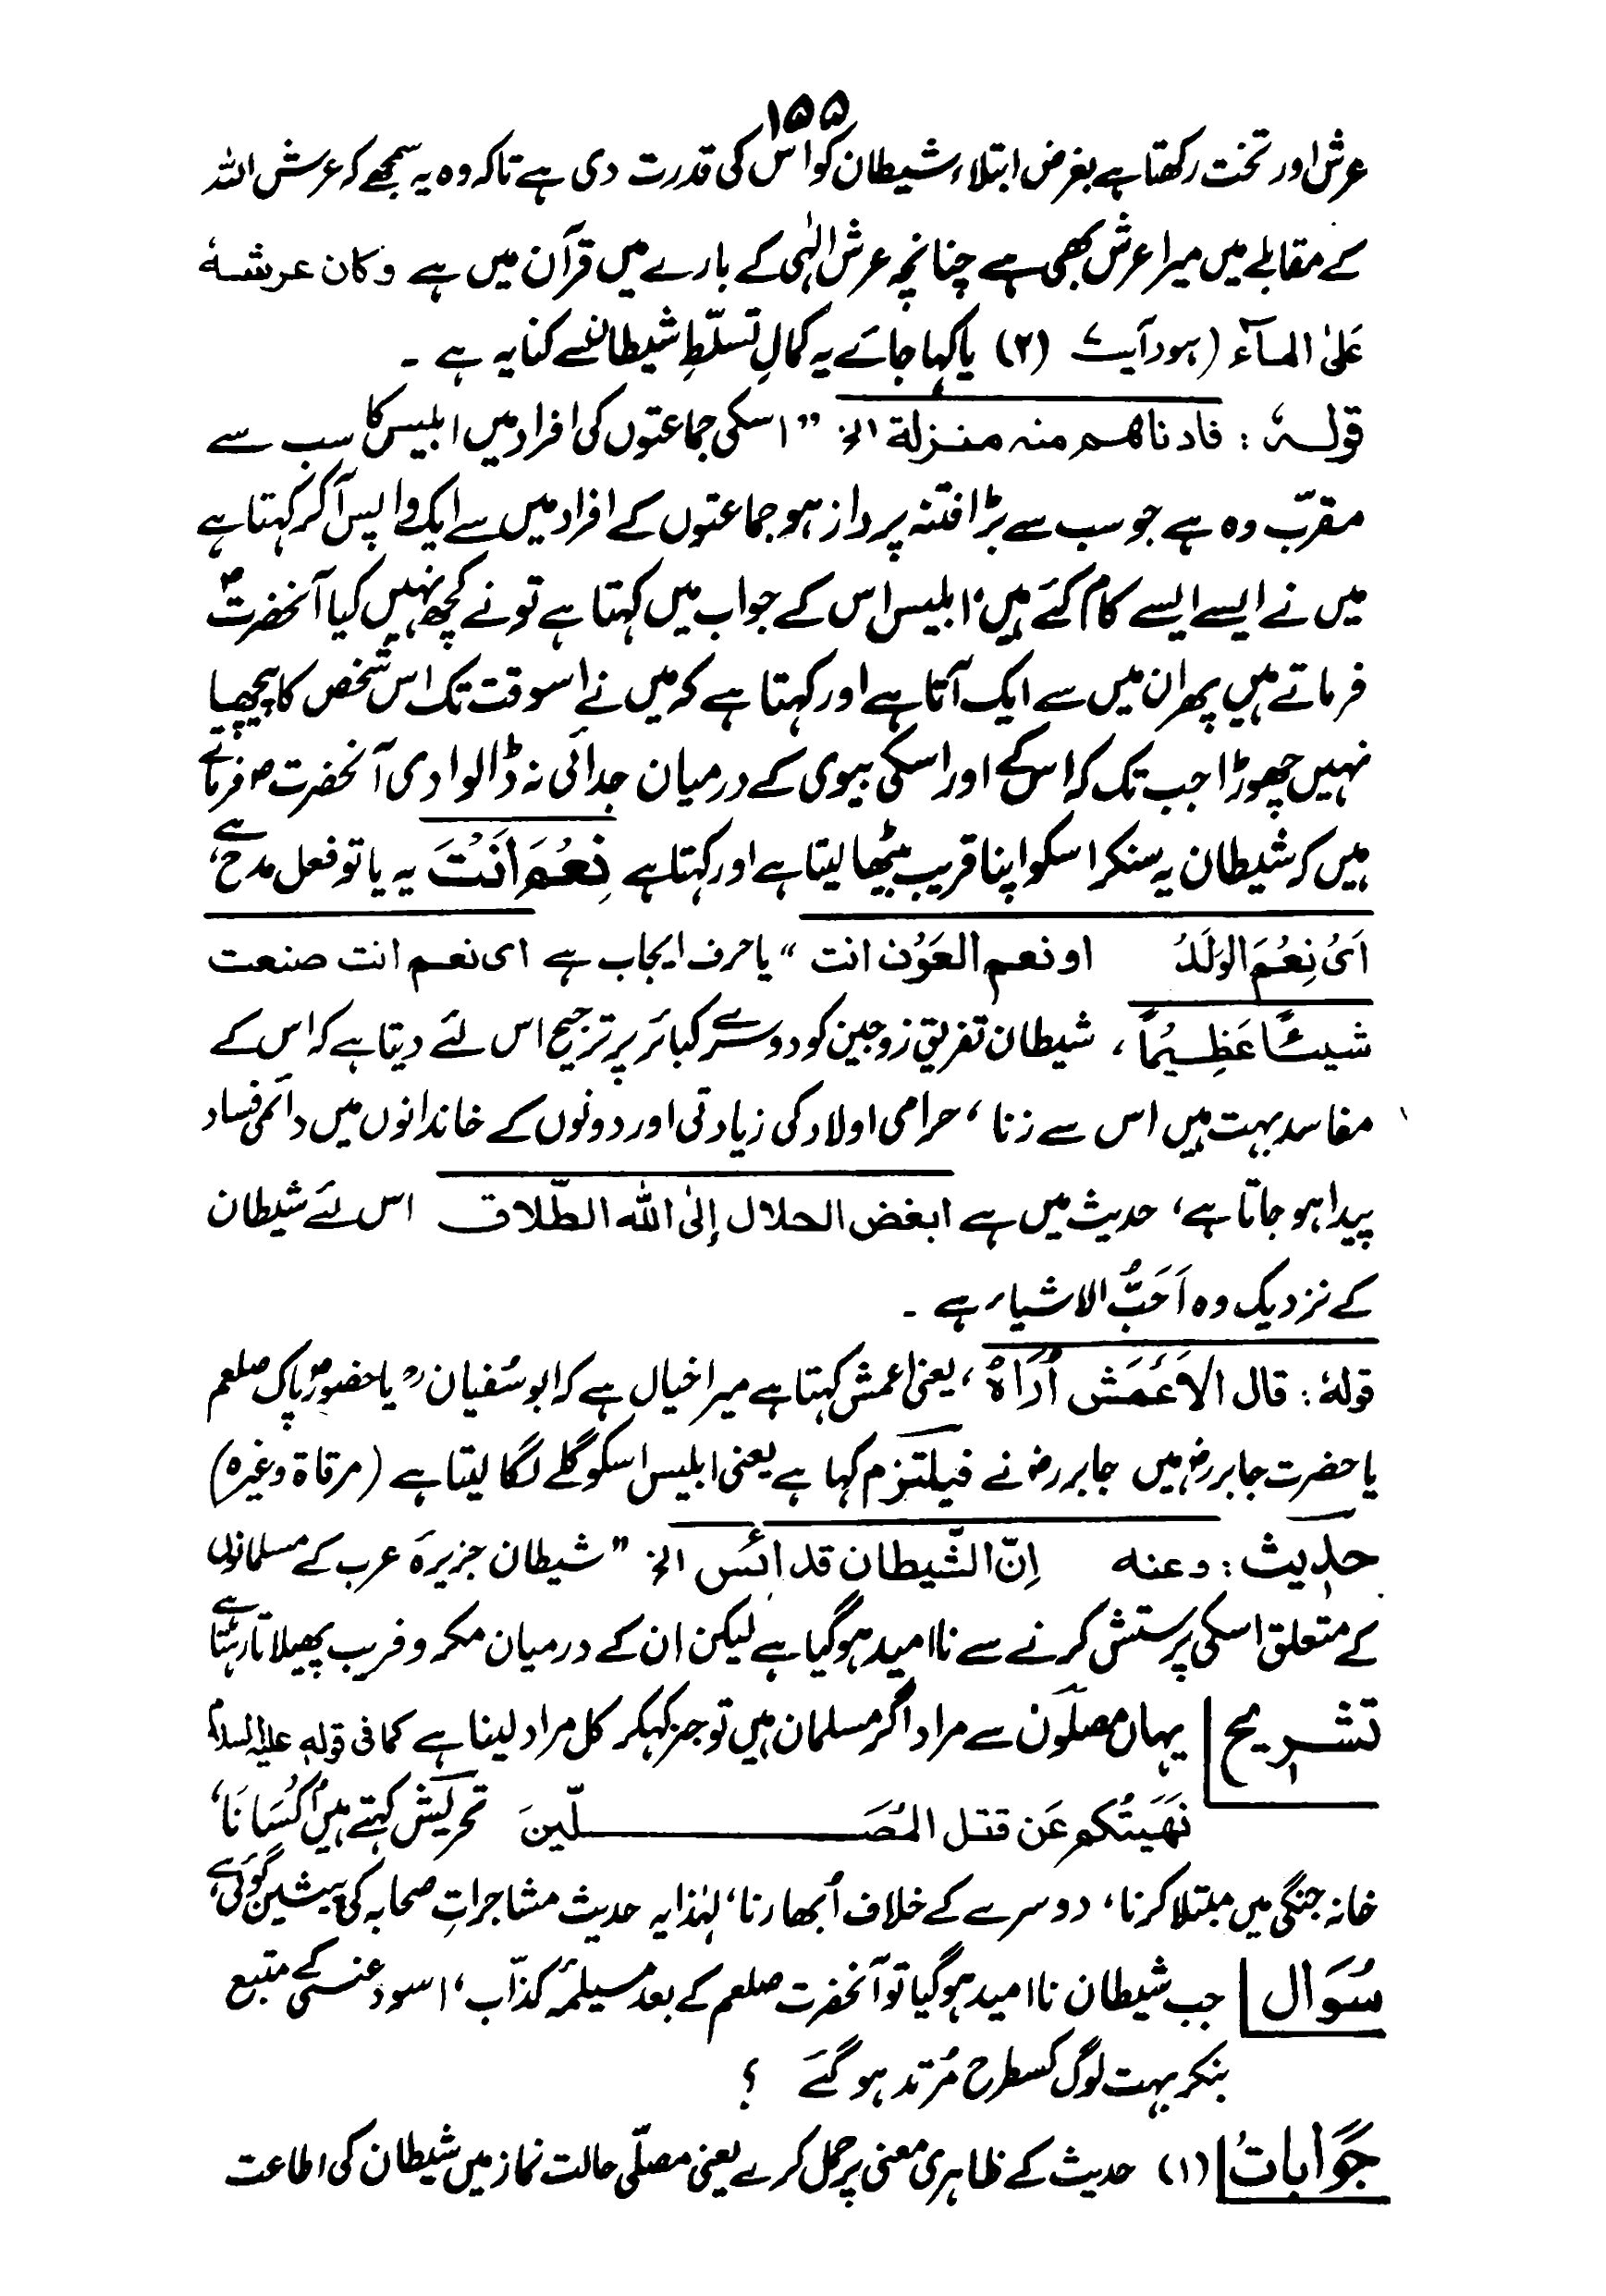 ۱۵۵
عرش اور تخت رکھتا ہے بغرض ابتلاء شیطان کو اس کی قدرت دی ہے تاکہ وہ یہ سمجھے کہ عرش اللہ
کے مقابلے میں میرا عرش بھی ہے چنانچہ عرش الٰہی کے بارے میں قرآن میں ہے وکان عرشہٗ
عَلیٰ المآء (ہود آیت ۷) (۲) یا کہا جائے یہ کمالِ تسلّطِ شیطان سے کنایہ ہے ۔
قولہٗ : فادناھم منہ منزلة الخ ” اسکی جماعتوں کی افراد میں ابلیس کا سب سے
مقرّب وہ ہے جو سب سے بڑا فتنہ پرداز ہو جماعتوں کے افراد میں سے ایک واپس آکر کہتا ہے
میں نے ایسے ایسے کام کئے ہیں، ابلیس اس کے جواب میں کہتا ہے تو نے کچھ نہیں کیا آنحضرتؐ
فرماتے ہیں پھر ان میں سے ایک آتا ہے اور کہتا ہے کہ میں نے اسوقت تک اس شخص کا پیچھا
نہیں چھوڑا جب تک کہ اس کے اور اسکی بیوی کے درمیان جدائی نہ ڈالوا دی آنحضرت ؐ فرماتے
ہیں کہ شیطان یہ سنکر اسکو اپنا قریب بیٹھا لیتا ہے اور کہتا ہے نِعْمَ اَنْتَ یہ یا تو فعل مدح ہے،
اَیْ نِعْمَ الْوَلَدُ او نعم العَوْن انت “ یا حرف ایجاب ہے ای نعم انت صنعت
شیئًا عَظِیْمًا ، شیطان تفریق زوجین کو دوسرے کبائر پر ترجیح اس لئے دیتا ہے کہ اس کے
مفاسد بہت ہیں اس سے زنا ، حرامی اولاد کی زیادتی اور دونوں کے خاندانوں میں دائمی فساد
پیدا ہو جاتا ہے، حدیث میں ہے ابغض الحلال إلیٰ اللہ الطّلاق اس لئے شیطان
کے نزدیک وہ اَحَبُّ الاشیاء ہے ۔
قولہٗ : قال الاَعْمَش اُرَاہُ ، یعنی اعمش کہتا ہے میرا خیال ہے کہ ابو سُفیانؓ یا حضور پاک صلعم
یا حضرت جابر رض ہیں جابر رض نے فیلتزم کہا ہے یعنی ابلیس اسکو گلے لگا لیتا ہے (مرقاة وغیرہ)
حدیث : وعنہ اِنّ الشّیطان قد ائس الخ ” شیطان جزیرۂ عرب کے مسلمانوں
کے متعلق اسکی پرستش کرنے سے نا امید ہوگیا ہے لیکن ان کے درمیان مکر و فریب پھیلاتا رہتا ہے
تشریح یہاں مصلّون سے مراد اگر مسلمان ہیں تو جز کہکر کل مراد لینا ہے کما فی قولہٖ علیہ السلام
نَھَیْتُکم عَن قتل المُصَلّینَ تحریش کہتے ہیں اُکسَانَا،
خانہ جنگی میں مبتلا کرنا، دوسرے کے خلاف اُبھارنا، لہٰذا یہ حدیث مشاجراتِ صحابہ کی پیشین گوئی ہے
سُوَال جب شیطان نا امید ہوگیا تو آنحضرت صلعم کے بعد مسیلمہ کذّاب، اسود عنسی کے متبع
بنکر بہت لوگ کسطرح مُرتد ہو گئے ؟
جَوَابات (۱) حدیث کے ظاہری معنی پر حمل کرے یعنی مصلّی حالت نماز میں شیطان کی اطاعت